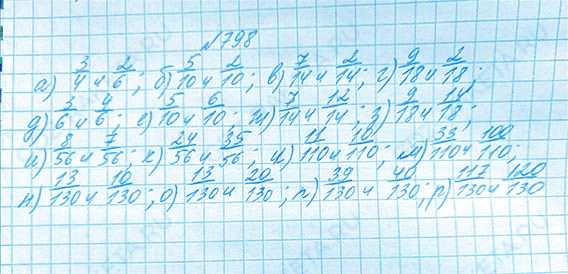 №798
а) 3/4 и 2/6; б) 5/10 и 2/10; в) 7/14 и 2/14; г) 9/18 и 2/18;
д) 3/6 и 4/6; е) 5/10 и 6/10; ж) 7/14 и 12/14; з) 9/18 и 14/18;
и) 8/56 и 7/56; к) 24/56 и 35/56; л) 11/110 и 10/110; м) 33/110 и 100/110;
н) 13/130 и 10/130; о) 13/130 и 20/130; п) 39/130 и 40/130; р) 117/130 и 120/130